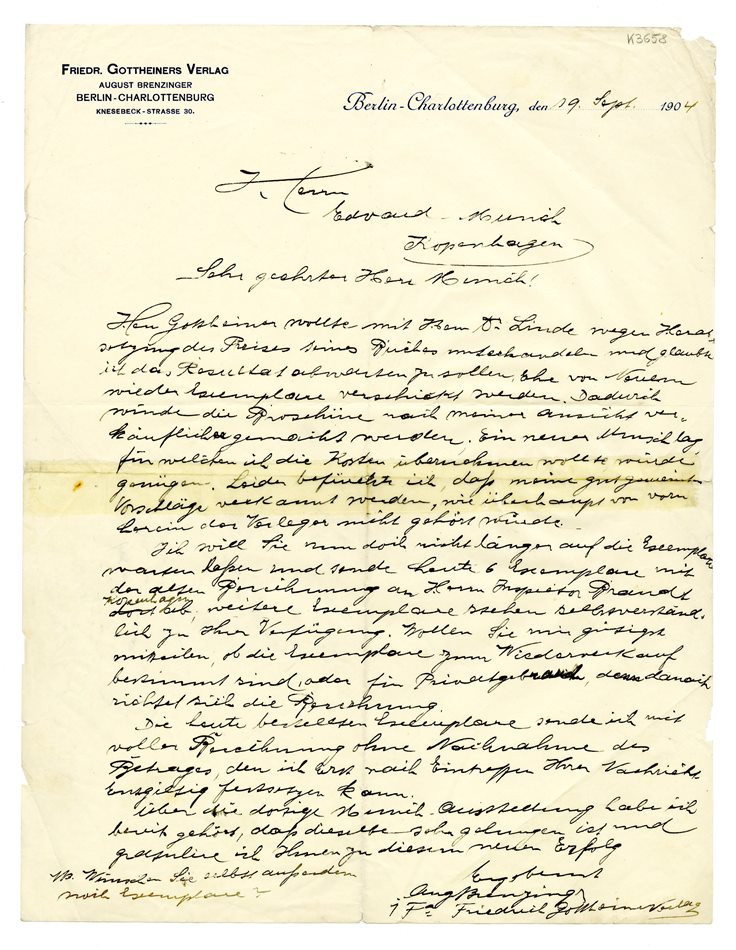 K3658
FRIEDR. GOTTHEINERS VERLAG
AUGUST BRENZINGER
BERLIN-CHARLOTTENBURG
KNESEBECK-STRASSE 30.
Berlin-Charlottenburg, den 19. Sept. 1904
H. Herrn
Edvard Munch
Kopenhagen
Sehr geehrter Herr Munch!
Herr Gottheiner wollte mit Herrn Dr. Linde wegen Herab-
setzung des Preises seines Buches unterhandeln und glaubte
ich das Resultat abwarten zu sollen, Ehe von Neuem
wieder Exemplare verschickt werden. Dadurch
würde die Broschüre nach meiner Ansicht ver-
käuflicher gemacht werden. Ein neuer Umschlag
für welchen ich die Kosten übernehmen wollte würde
genügen. Leider befürchte ich, daß meine gutgemeinten
Vorschläge verkannt werden, wie überhaupt von vorn
herein der Verleger nicht gehört wurde.
Ich will Sie nun doch nicht länger auf die Exemplare
warten laßen und sende heute 6 Exemplare mit
der alten Berechnung an Herrn Inspector Brandt
Kopenhagen
ab, weitere Exemplare stehen selbstverständ-
lich zu Ihrer Verfügung. Wollen Sie mir gütigst
mitteilen, ob die Exemplare zum Wiederverkauf
bestimmt sind, oder für Privatgebrauch, denn danach
richtet sich die Berechnung.
Die heute bestellten Exemplare sende ich mit
voller Berechnung ohne Nachnahme des
Betrages, den ich Erst nach Eintreffen Ihrer Nachricht
Entgültig festsetzen kann.
Über die dortige Munch-Ausstellung habe ich
bereit gehört, daß dieselbe sehr gelungen ist und
gratulire ich Ihnen zu diesem neuen Erfolg
Ergebenst
Aug Brenzinger
i Fa Friedrich Gottheiner Verlag
NB. Wünschen Sie selbst außerdem
noch Exemplare?